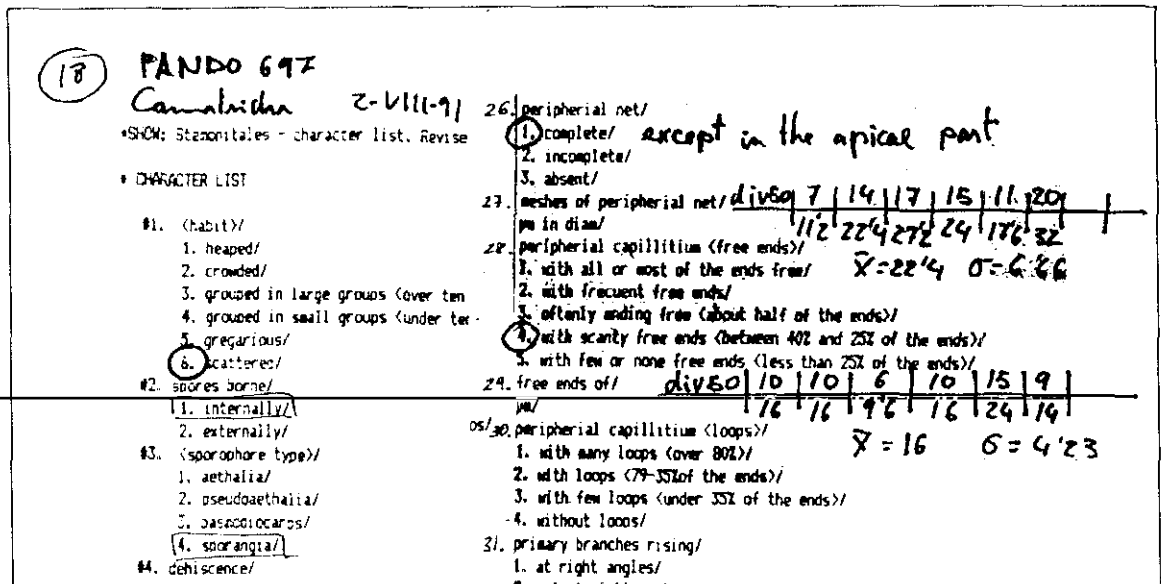 18 PANDO 697
Comatricha 2-VIII-91
*SHOW: Stemonitales - character list. Revise
* CHARACTER LIST
#1. <habit>/
1. heaped/
2. crowded/
3. grouped in large groups <over ten
4. grouped in small groups <under ten
5. gregarious/
6. scattered/
#2. spores borne/
1. internally/
2. externally/
#3. <sporophore type>/
1. aethalia/
2. pseudoaethalia/
3. plasmodiocarps/
4. sporangia/
#4. dehiscence/
26. peripherial net/
1. complete/ except in the apical part
2. incomplete/
3. absent/
27. meshes of peripherial net/ div50 7 | 14 | 17 | 15 | 11 | 20
µm in diam/ 11'2 22'4 27'2 24 17'6 32
28. peripherial capillitium <free ends>/
1. with all or most of the ends free/ x̄=22'4 σ=6'86
2. with frecuent free ends/
3. oftenly ending free <about half of the ends>/
4. with scanty free ends <between 40% and 25% of the ends>/
5. with few or none free ends <less than 25% of the ends>/
29. free ends of/ div50 | 10 | 10 | 6 | 10 | 15 | 9
µm/ 16 | 16 | 9'6 | 16 | 24 | 14
30. peripherial capillitium <loops>/ x̄ = 16 σ = 4'23
1. with many loops <over 80%>/
2. with loops <79-35%of the ends>/
3. with few loops <under 35% of the ends>/
4. without loops/
31. primary branches rising/
1. at right angles/